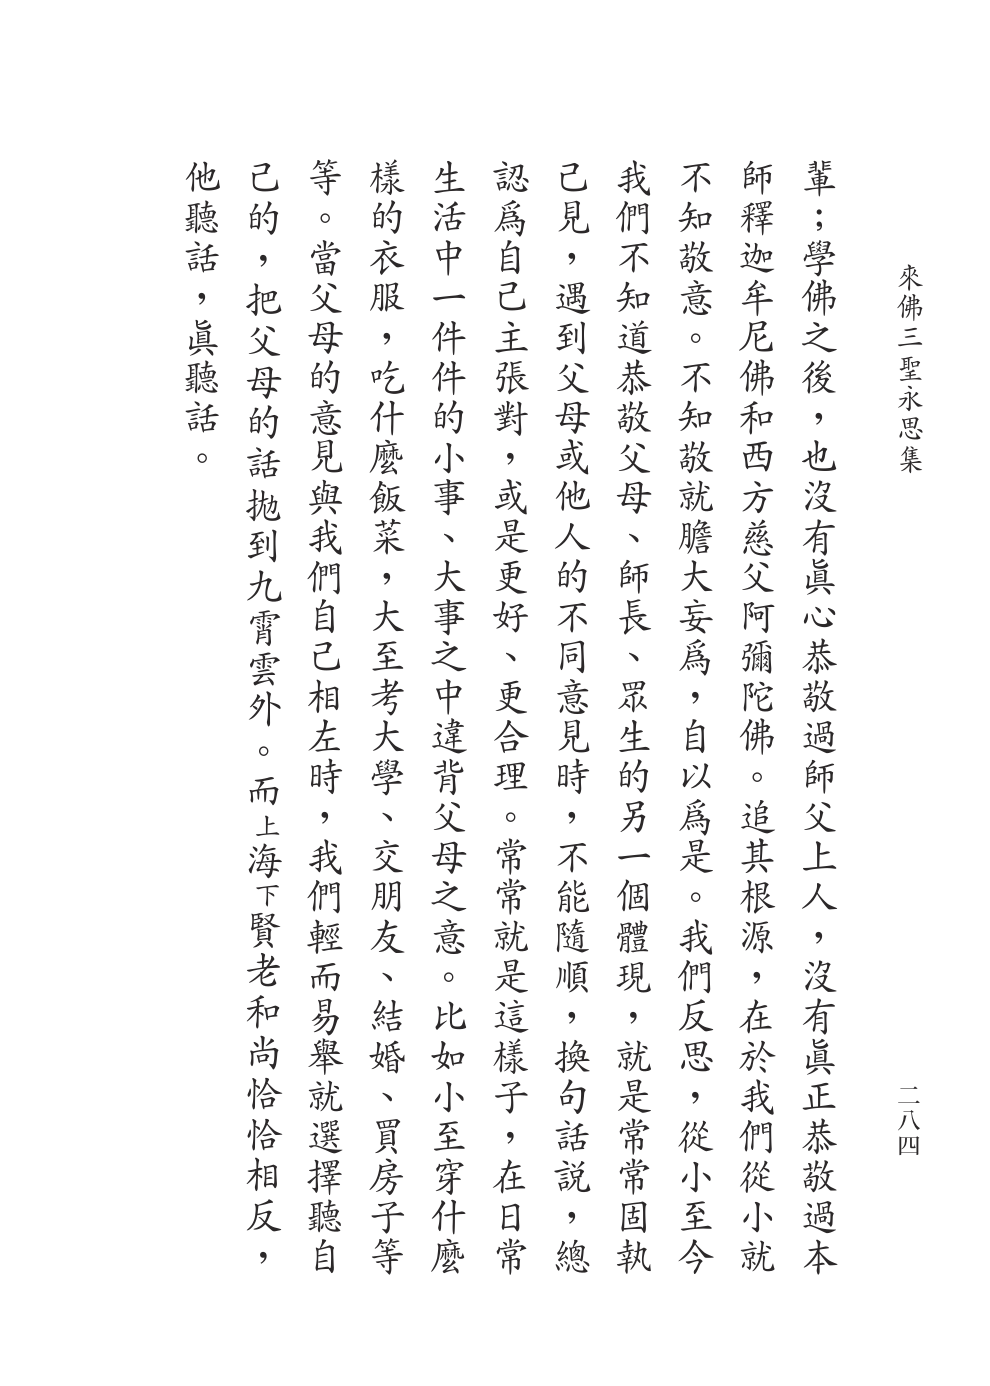 來佛三聖永思集
二八四
輩；學佛之後，也沒有眞心恭敬過師父上人，沒有眞正恭敬過本
師釋迦牟尼佛和西方慈父阿彌陀佛。追其根源，在於我們從小就
不知敬意。不知敬就膽大妄爲，自以爲是。我們反思，從小至今
我們不知道恭敬父母、師長、眾生的另一個體現，就是常常固執
己見，遇到父母或他人的不同意見時，不能隨順，換句話説，總
認爲自己主張對，或是更好、更合理。常常就是這樣子，在日常
生活中一件件的小事、大事之中違背父母之意。比如小至穿什麼
樣的衣服，吃什麼飯菜，大至考大學、交朋友、結婚、買房子等
等。當父母的意見與我們自己相左時，我們輕而易舉就選擇聽自
己的，把父母的話拋到九霄雲外。而上海下賢老和尚恰恰相反，
他聽話，眞聽話。